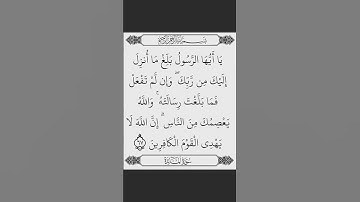 بِسْمِ اللَّهِ الرَّحْمَٰنِ الرَّحِيمِ
يَا أَيُّهَا الرَّسُولُ بَلِّغْ مَا أُنزِلَ
إِلَيْكَ مِن رَّبِّكَ ۖ وَإِن لَّمْ تَفْعَلْ
فَمَا بَلَّغْتَ رِسَالَتَهُ ۚ وَاللَّهُ
يَعْصِمُكَ مِنَ النَّاسِ ۗ إِنَّ اللَّهَ لَا
يَهْدِي الْقَوْمَ الْكَافِرِينَ ﴿٦٧﴾
سُورَةُ الْمَائِدَةِ